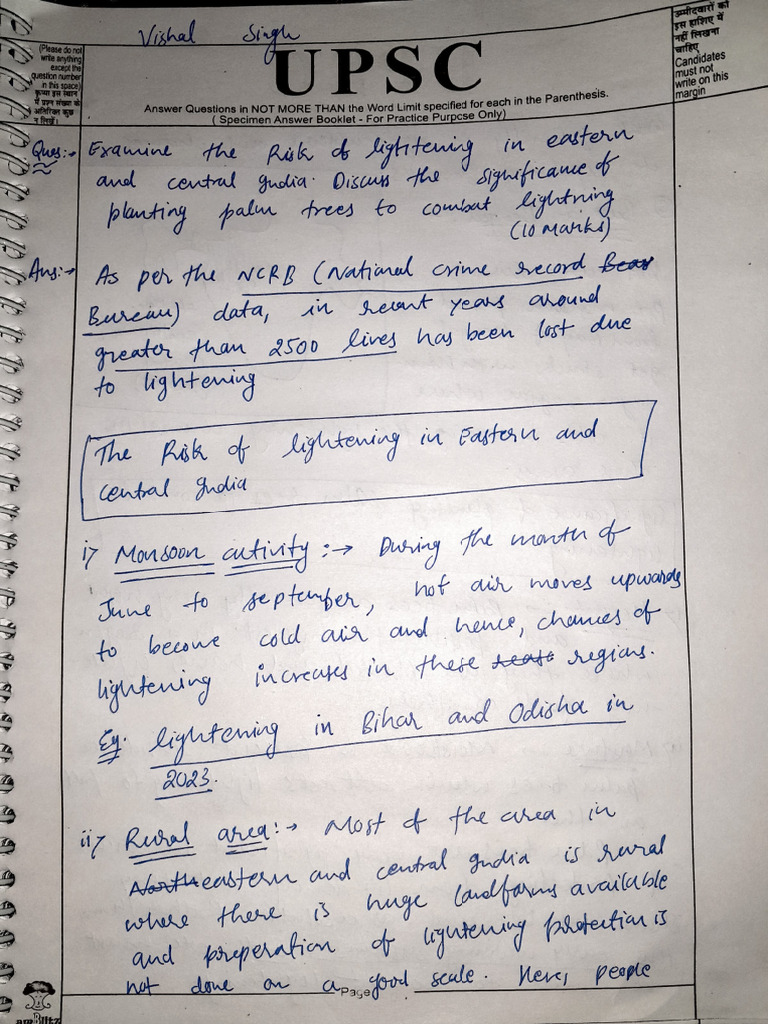 Vishal Singh
(Please do not
write anything
except the
question number
in this space)
कृपया इस स्थान
में प्रश्न संख्या के
अतिरिक्त कुछ
न लिखें।
UPSC
Answer Questions in NOT MORE THAN the Word Limit specified for each in the Parenthesis.
( Specimen Answer Booklet - For Practice Purpose Only)
उम्मीदवारों को
इस हाशिए में
नहीं लिखना
चाहिए
Candidates
must not
write on this
margin
Ques:- Examine the Risk of lightening in eastern
and central India. Discuss the significance of
planting palm trees to combat lightning
(10 marks)
Ans:- As per the NCRB (National crime record
Bureau) data, in recent years around
greater than 2500 lives has been lost due
to lightening
The Risk of lightening in Eastern and
central India
i) Monsoon activity :→ During the month of
June to september, hot air moves upwards
to become cold air and hence, chances of
lightening increases in these regions.
Eg. lightening in Bihar and Odisha in
2023.
ii) Rural area:→ Most of the area in
eastern and central India is rural
where there is huge landforms available
and preperation of lightening protection is
not done on a good scale. Here, people
Page